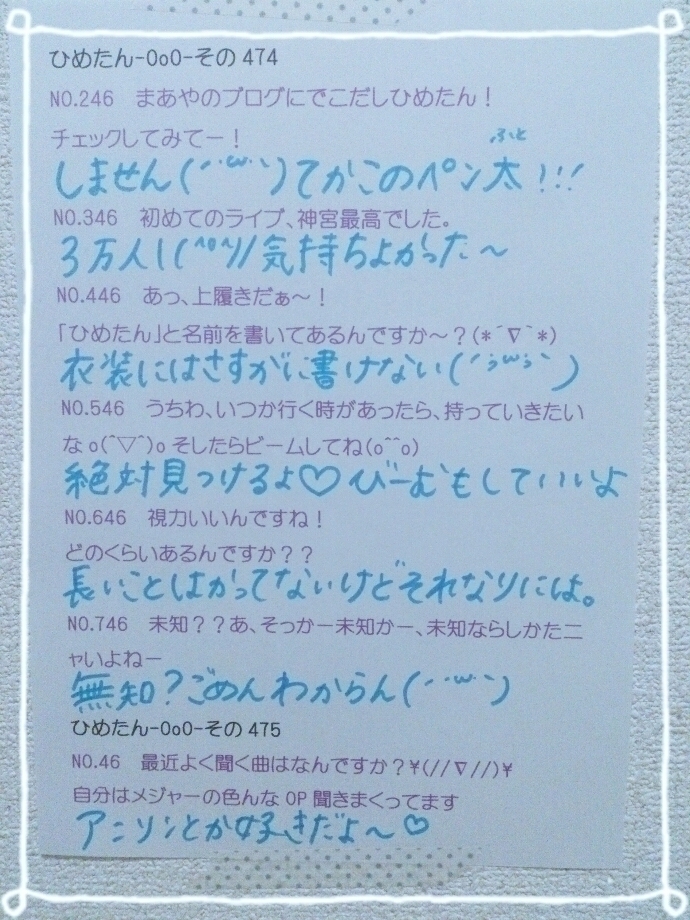 ひめたん-OoO-その474
NO.246　まあやのブログにでこだしひめたん！
チェックしてみてー！
しません(´･ω･｀)てかこのペン太!!!
ふと
NO.346　初めてのライブ、神宮最高でした。
3万人!(^o^)/気持ちよかった〜
NO.446　あっ、上履きだぁ〜！
「ひめたん」と名前を書いてあるんですか〜？(*´∇｀*)
衣装にはさすがに書けない(´･ω･｀)
NO.546　うちわ、いつか行く時があったら、持っていきたい
なo(^▽^)oそしたらビームしてね(o^^o)
絶対見つけるよ♡びーむもしていいよ
NO.646　視力いいんですね！
どのくらいあるんですか？？
長いことはかってないけどそれなりには。
NO.746　未知？？あ、そっかー未知かー、未知ならしかたニ
ャいよねー
無知？ごめんわからん(´･ω･｀)
ひめたん-OoO-その475
NO.46　最近よく聞く曲はなんですか？¥(//∇//)¥
自分はメジャーの色んなOP聞きまくってます
アニソンとか好きだよ〜♡